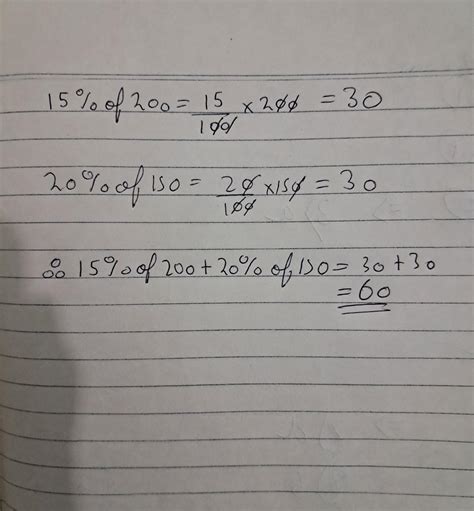 15% of 200 = 15/100 × 200 = 30
20% of 150 = 20/100 × 150 = 30
∴ 15% of 200 + 20% of 150 = 30 + 30
= 60